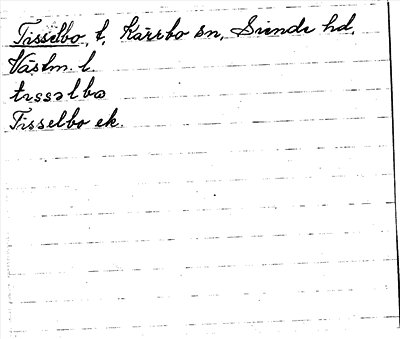 Tisselbo, t, Kärrbo sn, Siende hd,
Västm. l.
tɪssəlbω
Tisselbo ek.